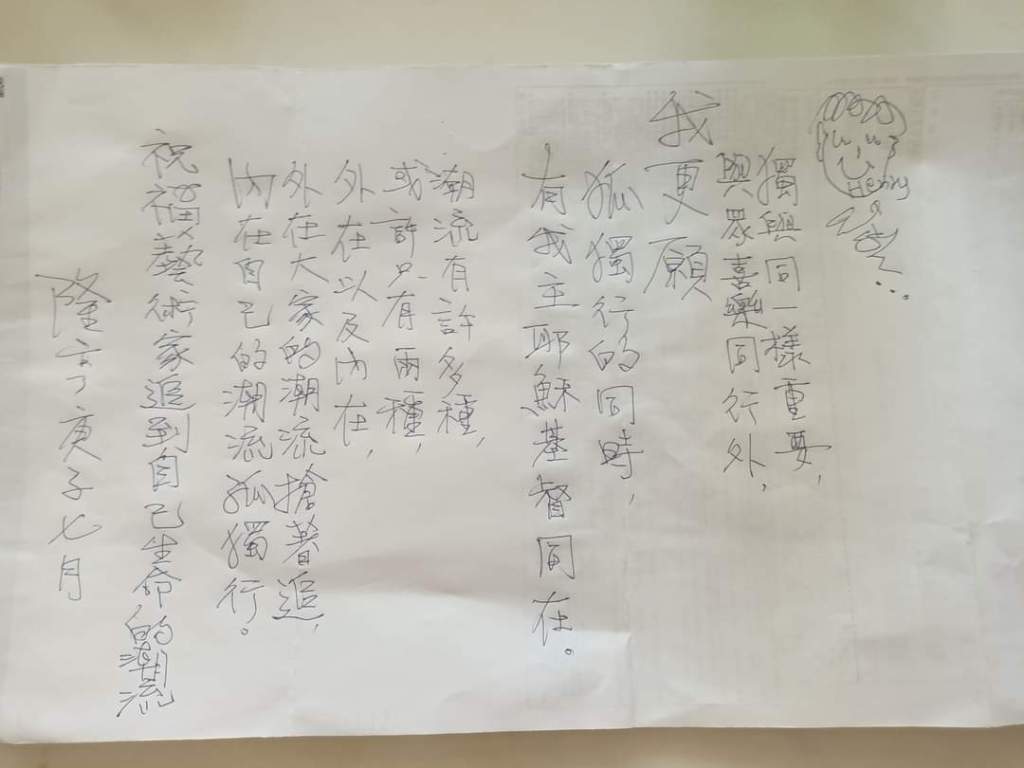 Henry
獨與同一樣重要，
與眾喜樂同行外，
我更願
孤獨行的同時，
有我主耶穌基督同在。
潮流有許多種，
或許只有兩種，
外在以及內在，
外在大家的潮流搶著追，
內在自己的潮流孤獨行。
祝福藝術家追到自己生命的潮流
隆言庚子七月